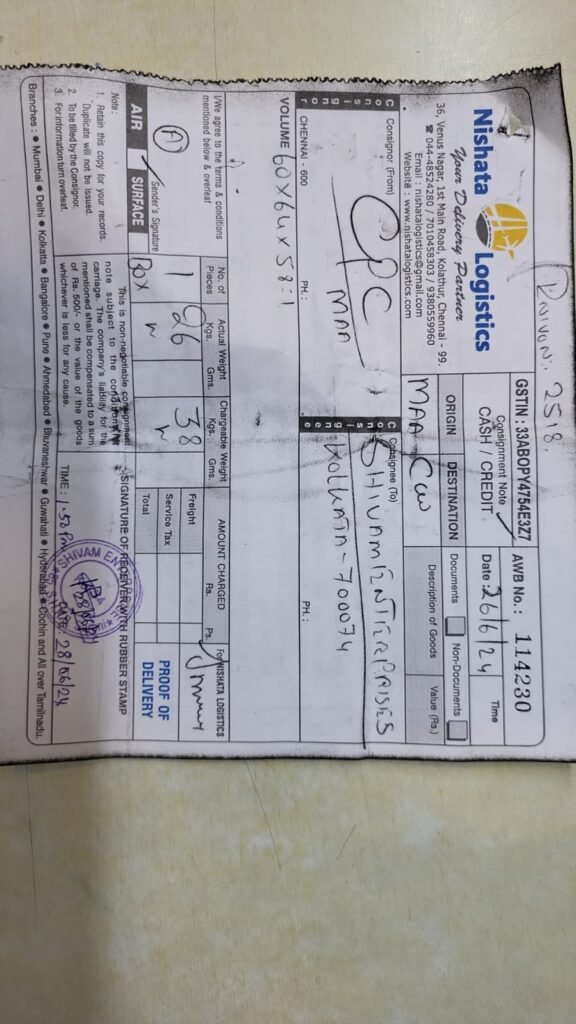 Nishata Logistics
Your Delivery Partner
36, Venus Nagar, 1st Main Road, Kolathur, Chennai - 99.
☎ 044-48524280 / 7010458303 / 9380559960
Email : nishatalogistics@gmail.com
Website : www.nishatalogistics.com
2518
GSTIN : 33ABOPY4754E3Z7
Consignment Note
CASH / CREDIT
AWB No.: 114230
Date : 26/6/24
Time
ORIGIN
DESTINATION
MAA
CCU
Documents
Non-Documents
Description of Goods
Value (Rs.)
Consignor
Consignor (From)
CPC
MAA
CHENNAI - 600
PH.:
Consignee
Consignee (To)
SHIVAM ENTERPRISES
KOLKATA - 700074
PH.:
VOLUME 60X64X58:1
I/We agree to the terms & conditions
mentioned below & overleaf
Sender's Signature
AIR
SURFACE
No. of
Pieces
1
BOX
Actual Weight
Kgs.
Gms.
26
Chargeable Weight
Kgs.
Gms.
38
AMOUNT CHARGED
Rs.
Ps.
Freight
Service Tax
Total
For NISHATA LOGISTICS
PROOF OF
DELIVERY
Note :
1. Retain this copy for your records.
Duplicate will not be issued.
2. To be filled by the Consignor.
3. For information turn overleaf.
This is non-negotiable consignment
note subject to the conditions of
carriage. The company's liability for the
mentioned shall be compensated to a sum
of Rs. 500/- or the value of the goods
whichever is less for any cause.
SIGNATURE OF RECEIVER WITH RUBBER STAMP
SHIVAM
TIME : 1.50 Pm
DATE: 28/06/24
Branches : ● Mumbai ● Delhi ● Kolkatta ● Bangalore ● Pune ● Ahmedabad ● Bhuvaneshwar ● Guwahati ● Hyderabad ● Cochin and All over Tamilnadu.